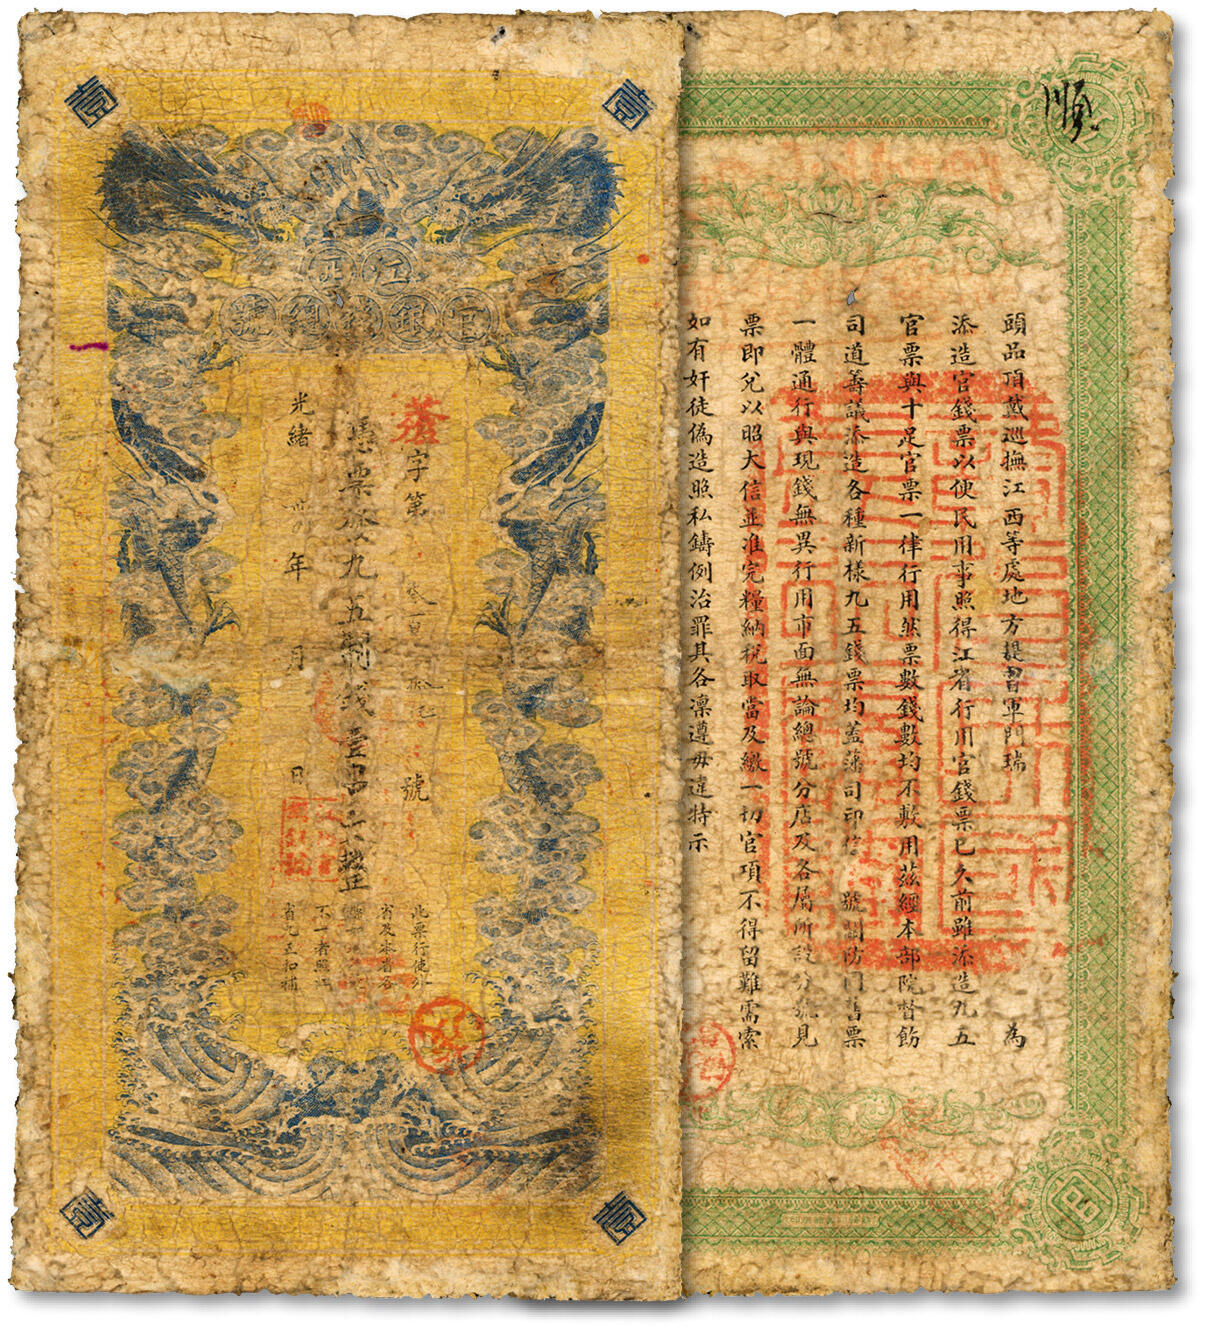 壹
壹
江西
官銀錢總號
字第 號
憑票發九五制錢壹串文整
光緒 年 月 日
此票行使外
省及本省各
不一者照江
省九五扣補
壹
壹
順
頭品頂戴巡撫江西等處地方提督軍門瑞 為
添造官錢票以便民用事照得江省行用官錢票已久前雖添造九五
官票與十足官票一律行用然票數錢數均不敷用茲經本部院督飭
司道籌議添造各種新樣九五錢票均蓋藩司印信 號關防同舊票
一體通行與現錢無異行用市面無論總號分店及各屬所設分號見
票即兌以昭大信並准完糧納稅取當及繳一切官項不得留難需索
如有奸徒偽造照私鑄例治罪其各凜遵毋違特示